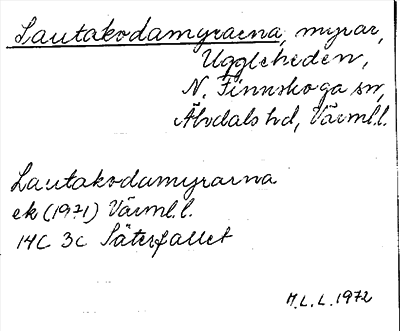 Lautakodamyrarna, myrar,
Uggleheden,
N. Finnskoga sn,
Älvdals hd, Värml.l.
Lautakodamyrarna
ek (1971) Värml.l.
14C 3c Säterfallet
M.L.L. 1972